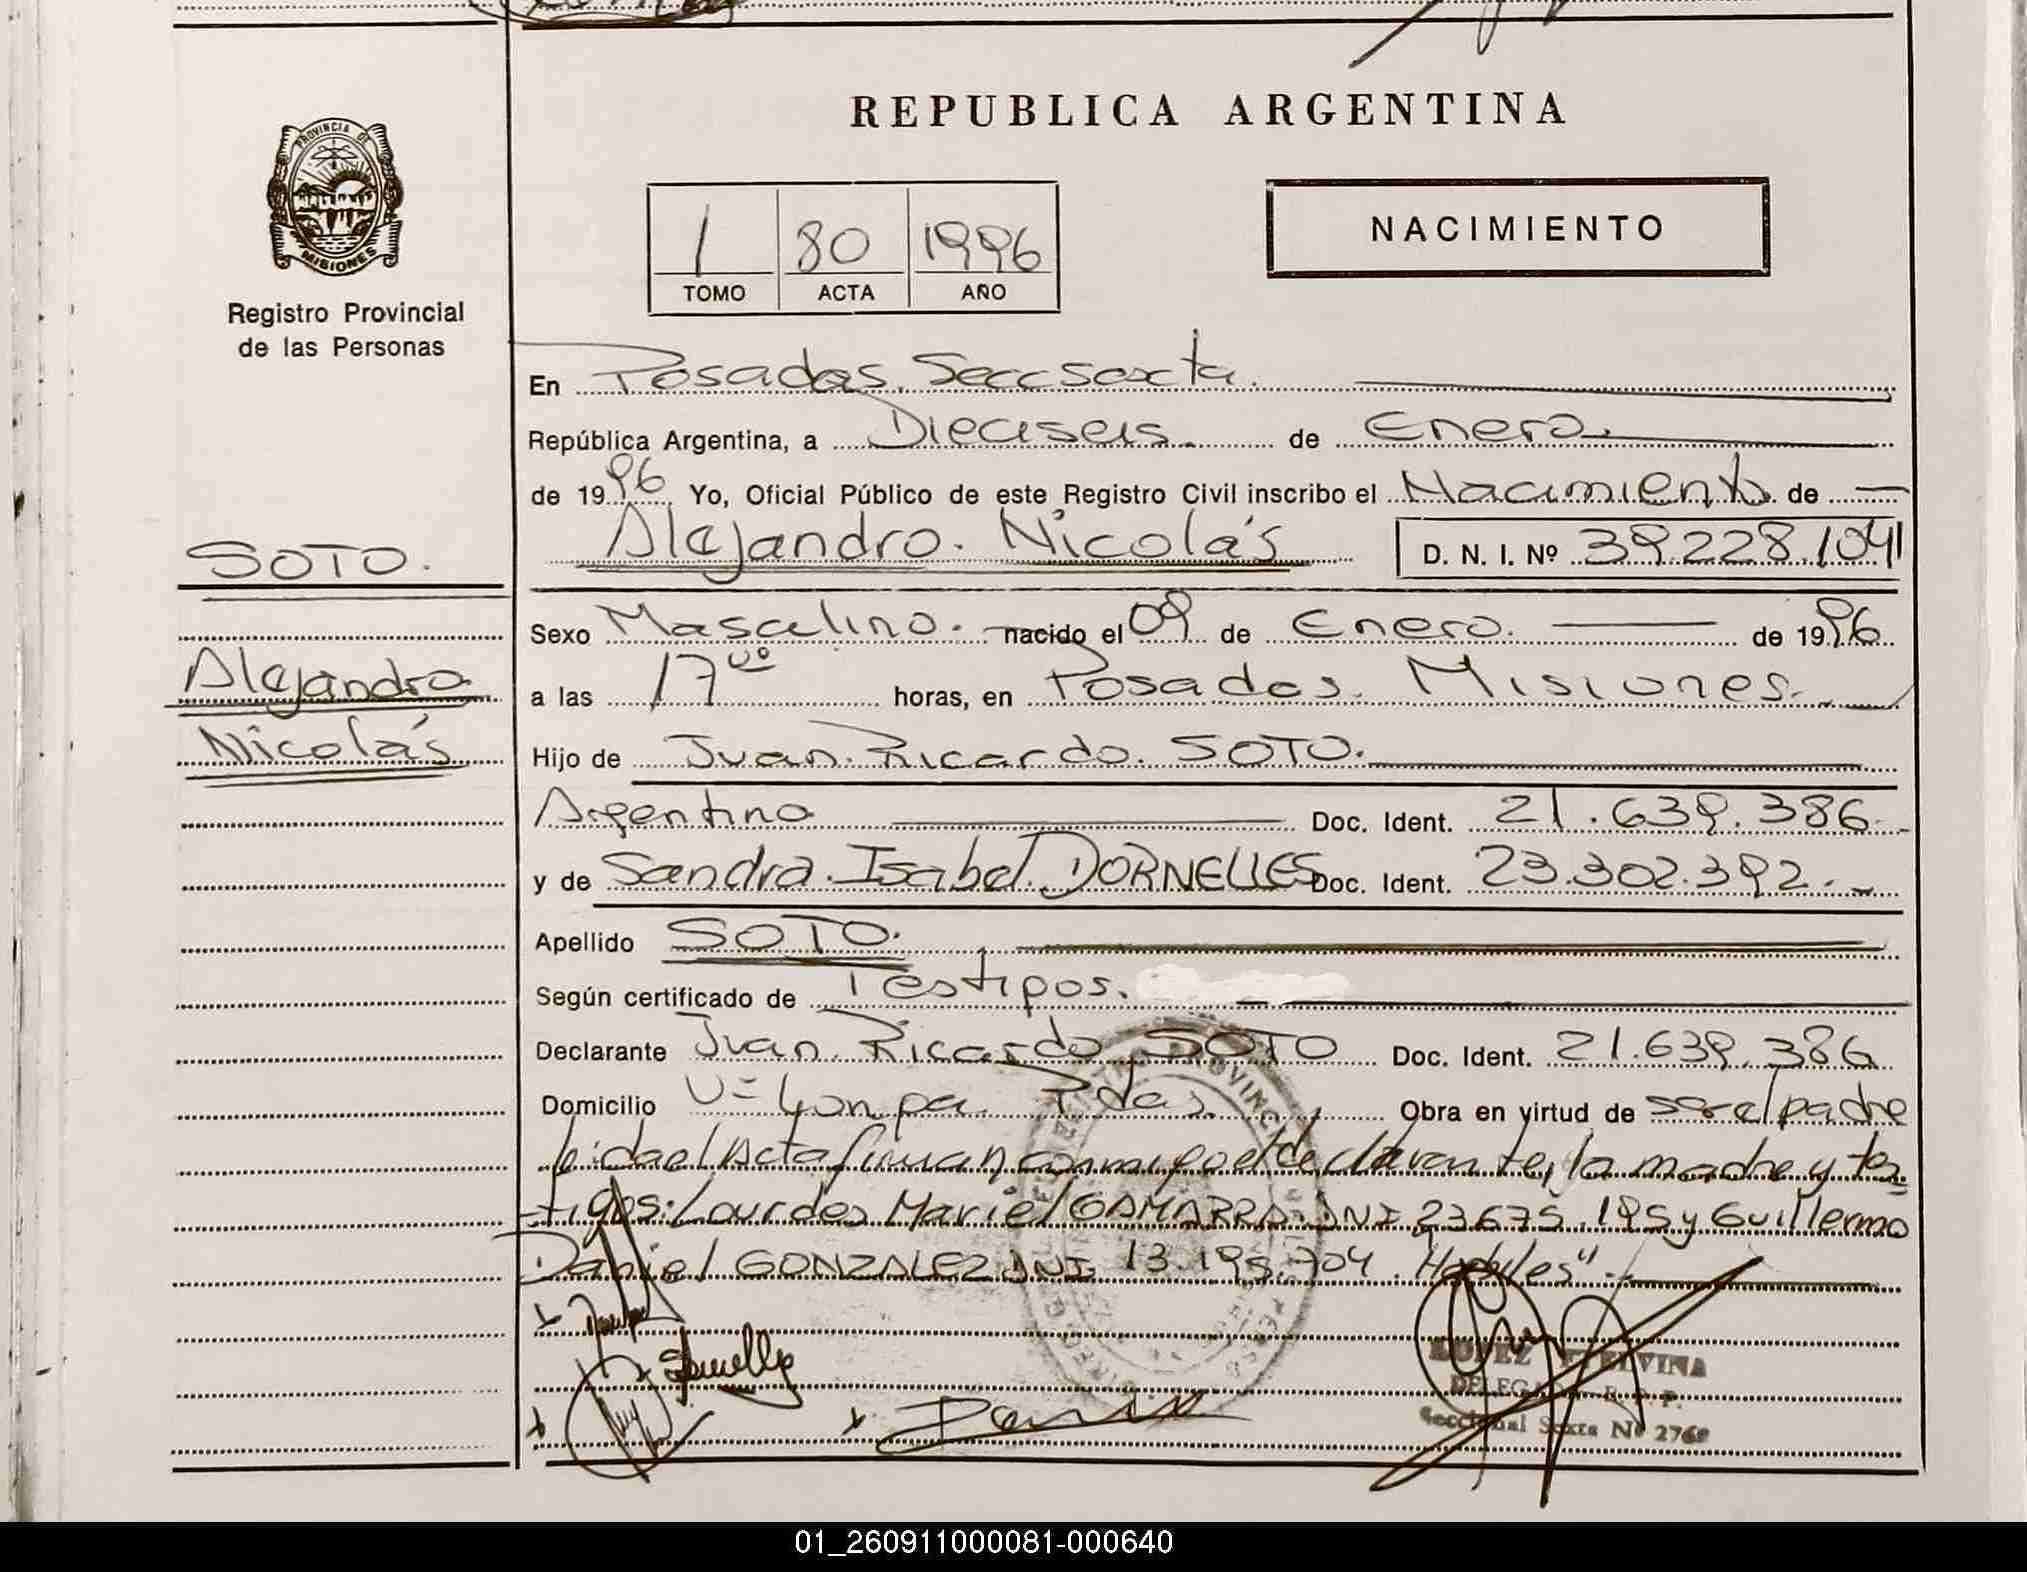 REPUBLICA ARGENTINA
PROVINCIA DE
MISIONES
Registro Provincial
de las Personas
1 80 1996
TOMO ACTA AÑO
NACIMIENTO
En Posadas. Secc sexta.
República Argentina, a Dieciseis. de Enero.
de 1996 Yo, Oficial Público de este Registro Civil inscribo el Nacimiento de
Alejandro. Nicolás D. N. I. Nº 39.228.104
SOTO.
Alejandro
Nicolás
Sexo Masculino. nacido el 09 de Enero. de 1996
a las 17 horas, en Posadas. Misiones.
Hijo de Juan. Ricardo. SOTO.
Argentino Doc. Ident. 21.639.386
y de Sandra. Isabel. DORNELLES Doc. Ident. 23.302.392.
Apellido SOTO.
Según certificado de Testigos.
Declarante Juan. Ricardo SOTO Doc. Ident. 21.639.386
Domicilio Pdas. Obra en virtud de ser el padre
leida el Acta firman conmigo el declarante, la madre y tes
tigos: Lourdes Mariel GAMARRA DNI 23675.195 y Guillermo
Daniel GONZALEZ DNI 13.195.704. Habiles".
LOPEZ ETELVINA
DELEGADA R. P. P.
Seccional Sexta Nº 2769
01_260911000081-000640